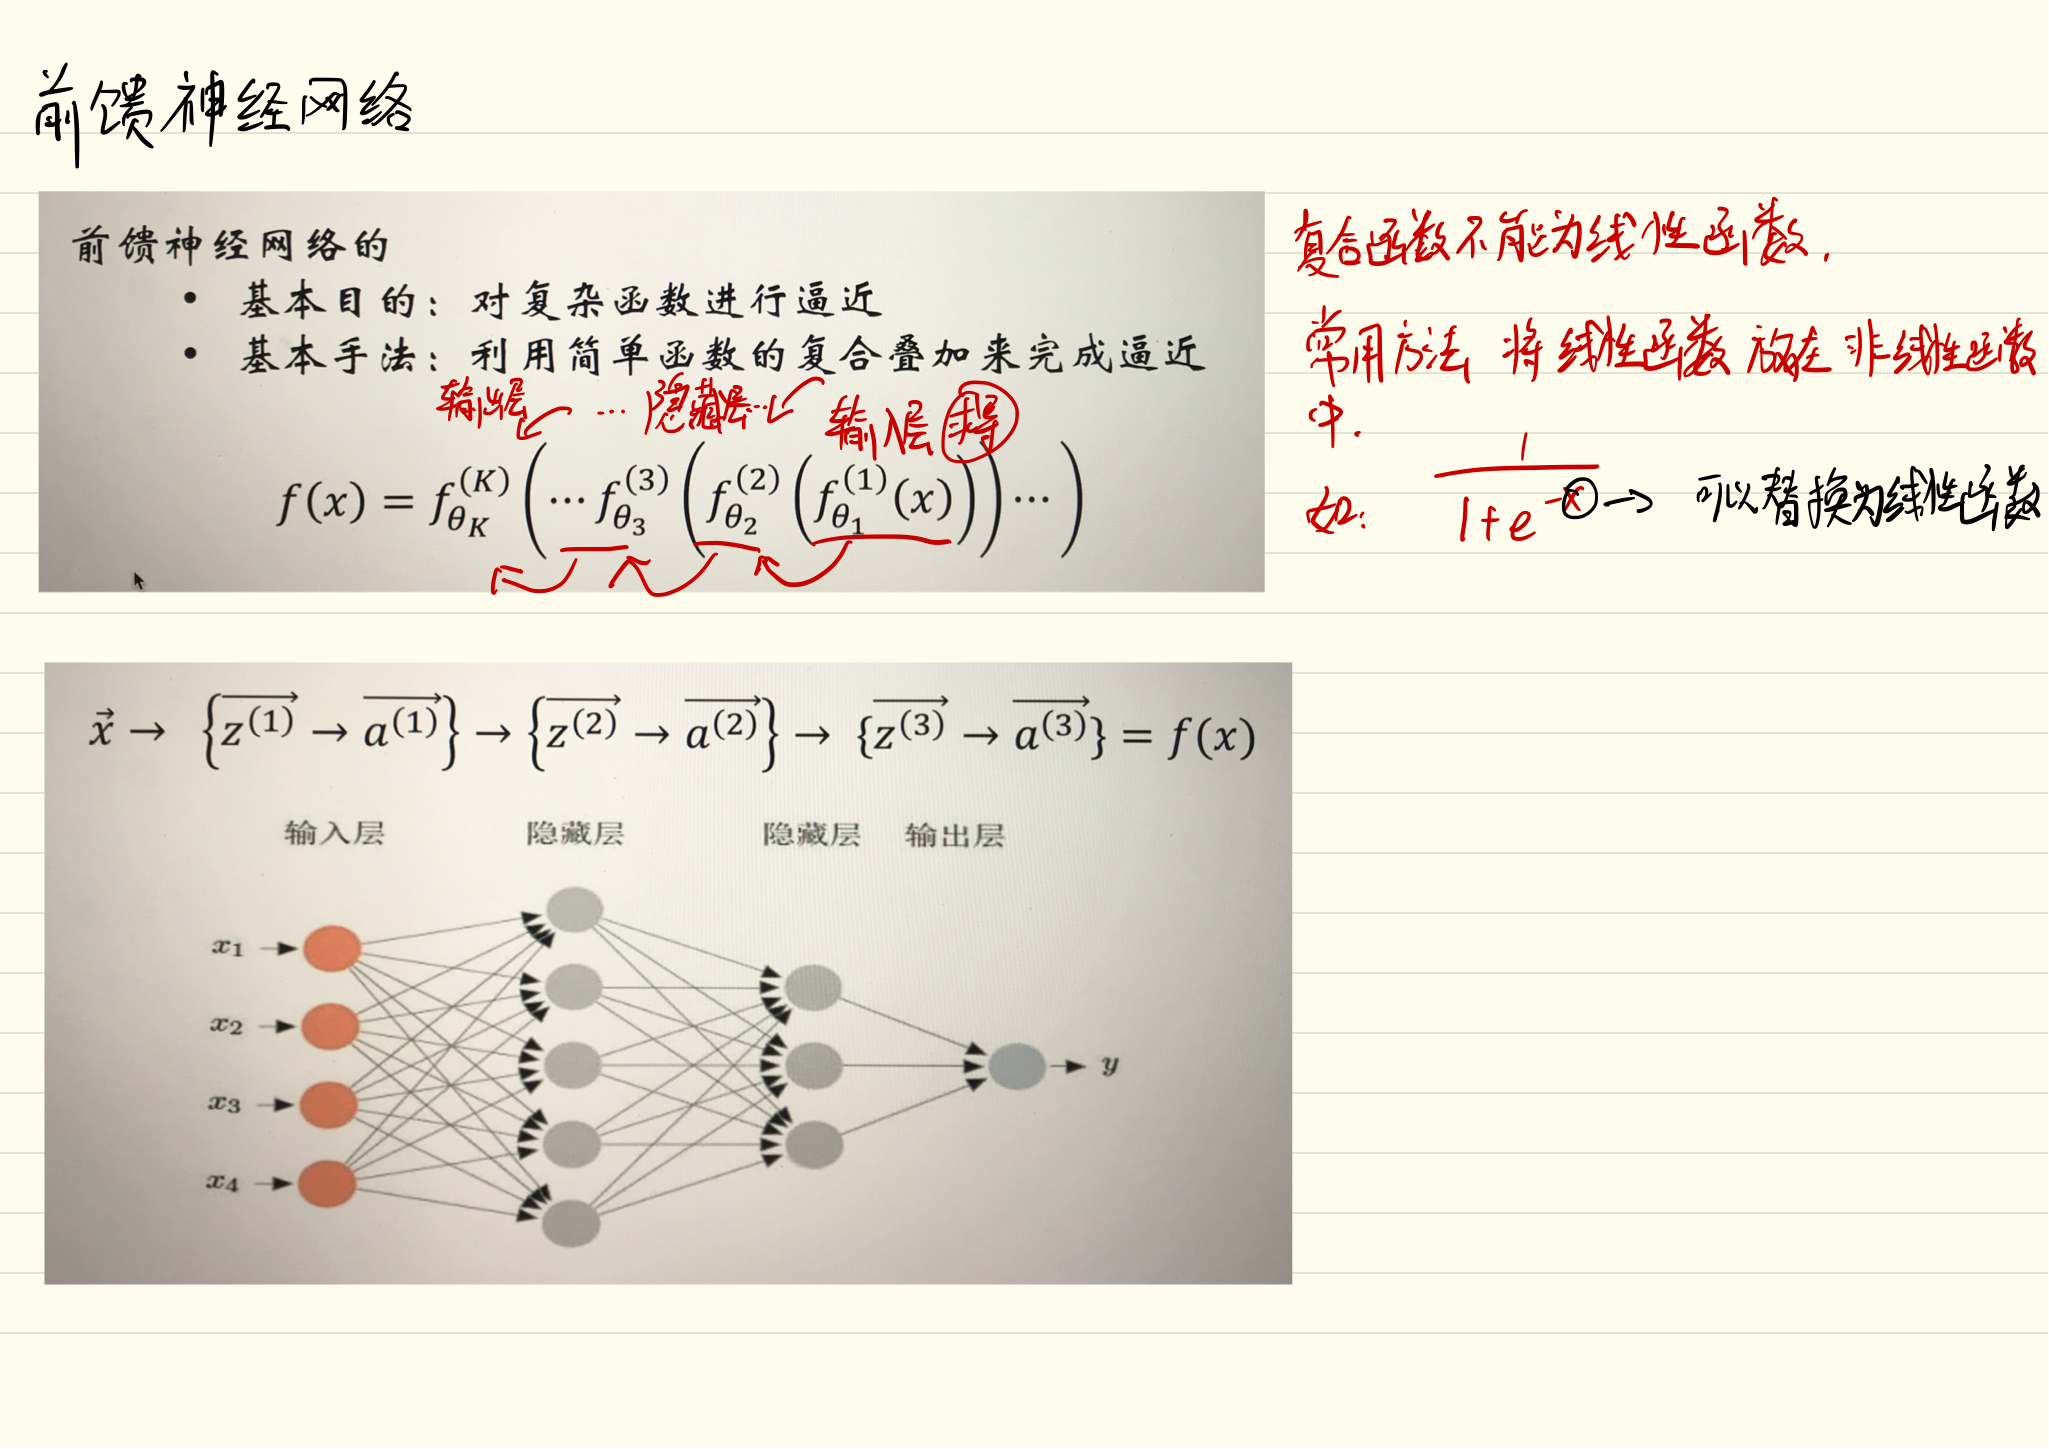 前馈神经网络
前馈神经网络的
• 基本目的：对复杂函数进行逼近
• 基本手法：利用简单函数的复合叠加来完成逼近
输出层 … 隐藏层… 输入层
f(x) = f_{θ_K}^{(K)} (⋯ f_{θ_3}^{(3)} (f_{θ_2}^{(2)} (f_{θ_1}^{(1)} (x))) ⋯)
复合函数不能为线性函数.
常用方法 将线性函数 放在 非线性函数
中.
如: 1/(1+e^{-x}) → 可以替换为线性函数
\vec{x} → {\overrightarrow{z^{(1)}} → \overrightarrow{a^{(1)}}} → {\overrightarrow{z^{(2)}} → \overrightarrow{a^{(2)}}} → {\overrightarrow{z^{(3)}} → \overrightarrow{a^{(3)}}} = f(x)
输入层 隐藏层 隐藏层 输出层
x₁
x₂
x₃
x₄
y